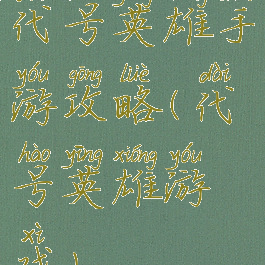 代号英雄手
yóu gōng lüè dài
游攻略(代
hào yīng xióng yóu
号英雄游
xì
戏)